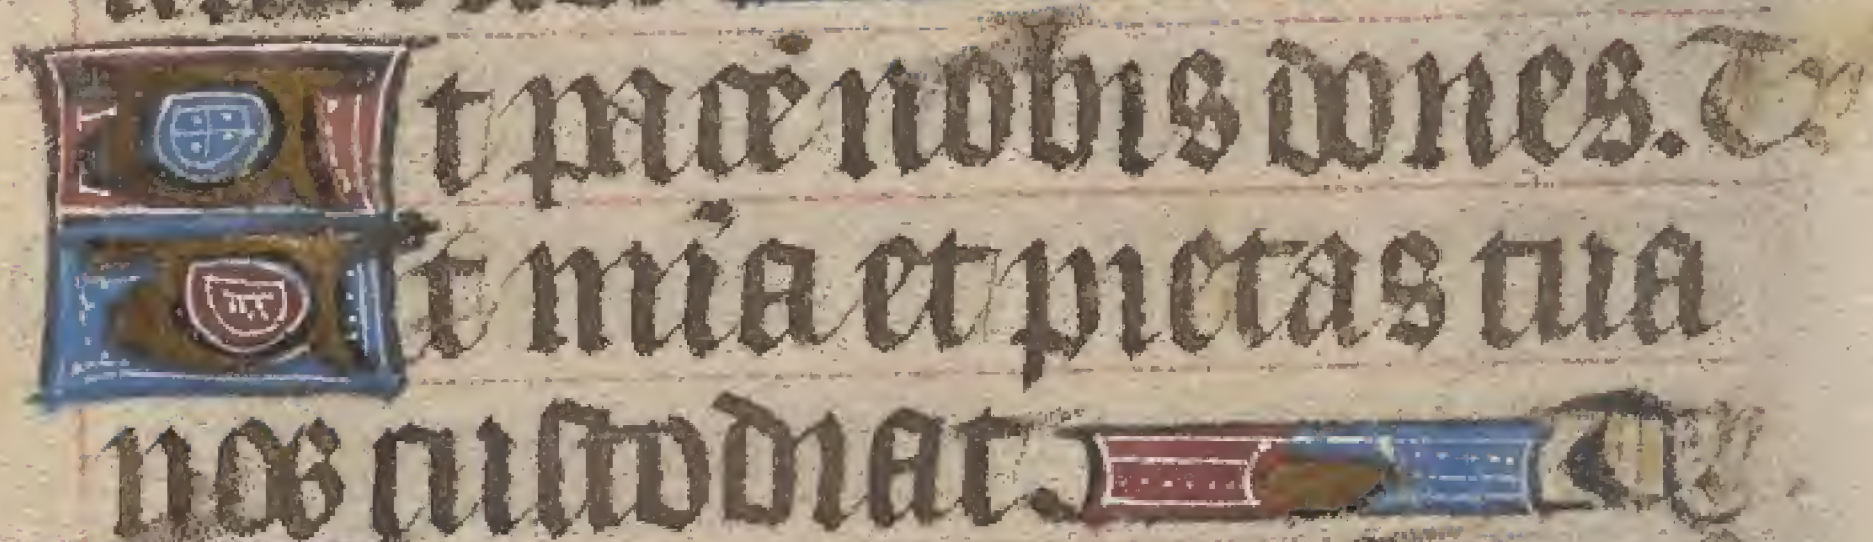 Et pace nobis dones.
Et mia et pietas tua
nos custodiat.